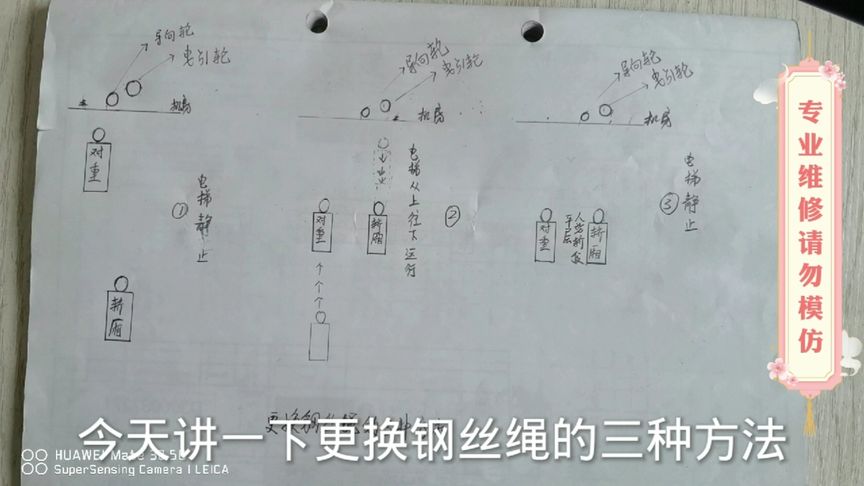 导向轮
曳引轮
机房
对重
电梯静止
①
轿厢
导向轮
曳引轮
机房
对重
轿厢
电梯从上往下运行
②
导向轮
曳引轮
机房
对重
轿厢
平层
电梯静止
③
专业维修请勿模仿
更换钢丝绳
今天讲一下更换钢丝绳的三种方法
HUAWEI Mate 30 5G
SuperSensing Camera | LEICA